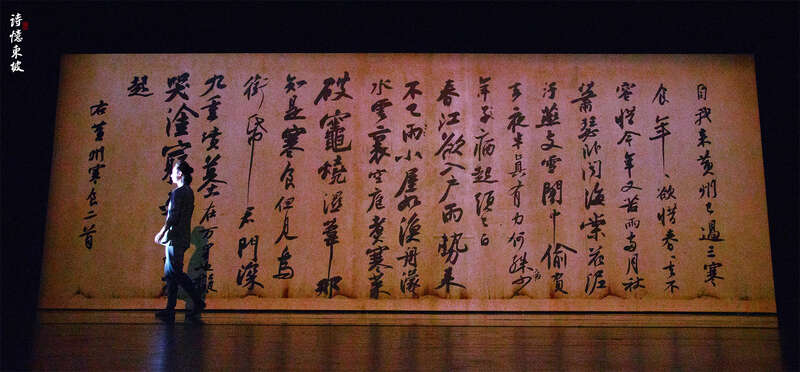 诗憶東坡
自我來黄州已過三寒
食年〻欲惜春〻去不
容惜今年又苦雨兩月秋
蕭瑟卧聞海棠花泥
汙燕支雪闇中偷負
去夜半真有力何殊少
年子病起頭已白
春江欲入户雨勢來
不已雨小屋如漁舟濛〻
水雲裏空庖煮寒菜
破竈燒濕葦那
知是寒食但見烏
銜帋君門深
九重墳墓在万里也擬
哭塗窮
起
右黄州寒食二首